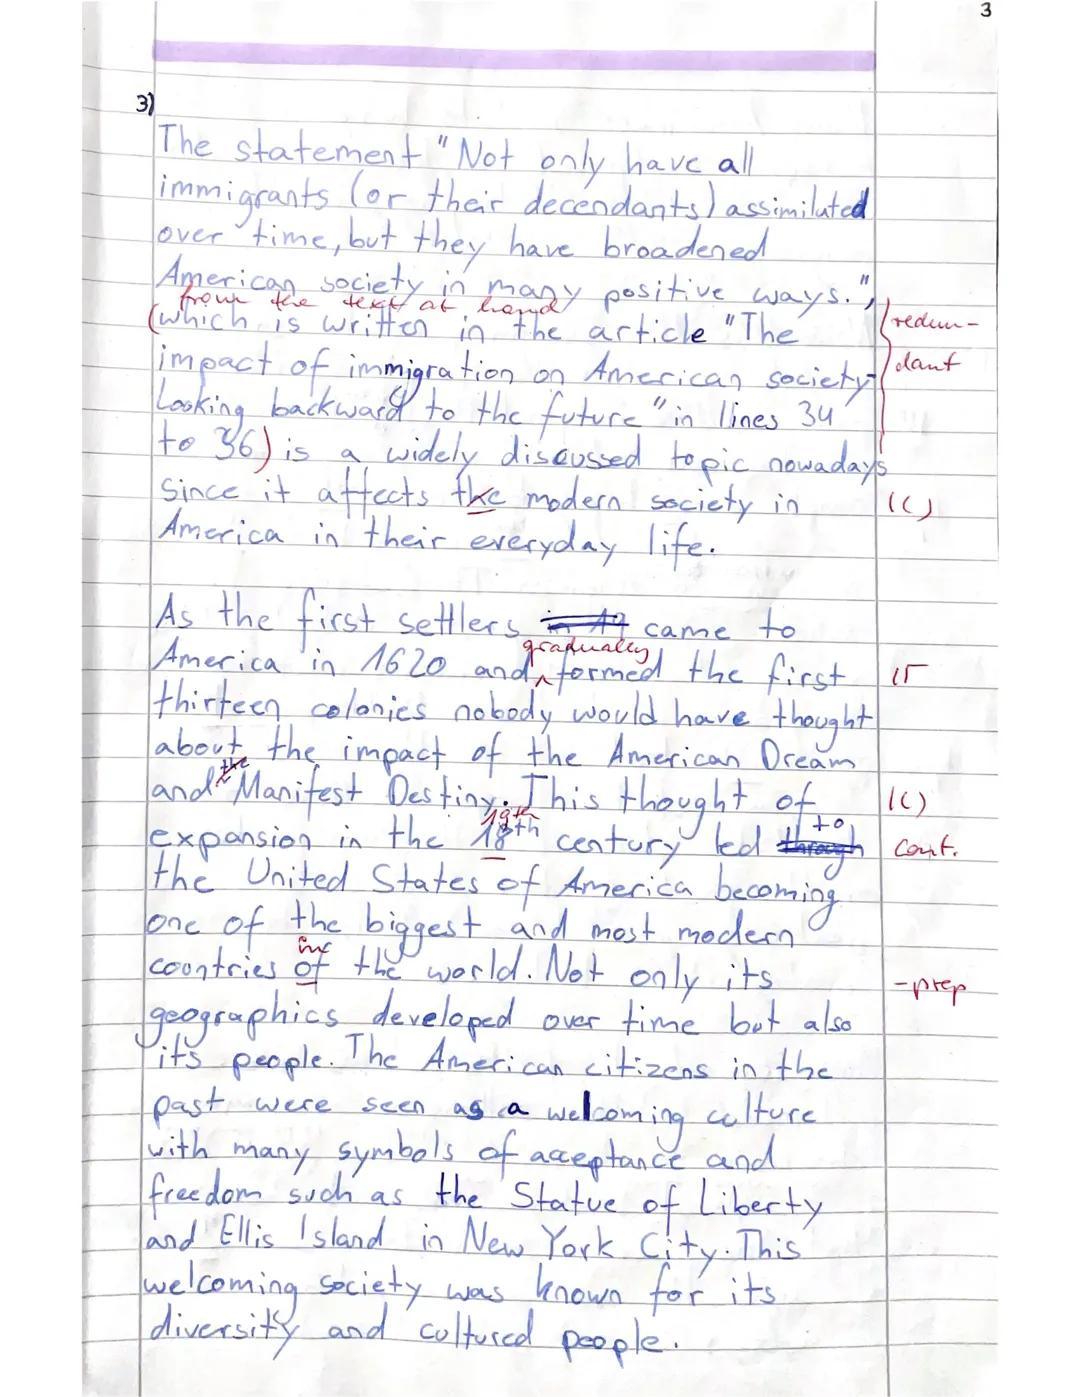 3
3)
The statement "Not only have all
immigrants (or their decendants) assimilated
over time, but they have broadened
American society in many positive ways.",
from the text at hand
(which is written in the article "The
redun-
impact of immigration on American society-
dant
Looking backward to the future" in lines 34
to 36) is a widely discussed topic nowadays
since it affects the modern society in
America in their everyday life.
As the first settlers came to
gradually
America in 1620 and formed the first
thirteen colonies nobody would have thought
about the impact of the American Dream
the
and Manifest Destiny. This thought of
19th to
expansion in the 18th century led through
cont.
the United States of America becoming
one of the biggest and most modern
in
countries of the world. Not only its
-prep
geographics developed over time but also
it's people. The American citizens in the
past were seen as a welcoming culture
with many symbols of acceptance and
freedom such as the Statue of Liberty
and Ellis Island in New York City. This
welcoming society was known for its
diversity and cultured people.